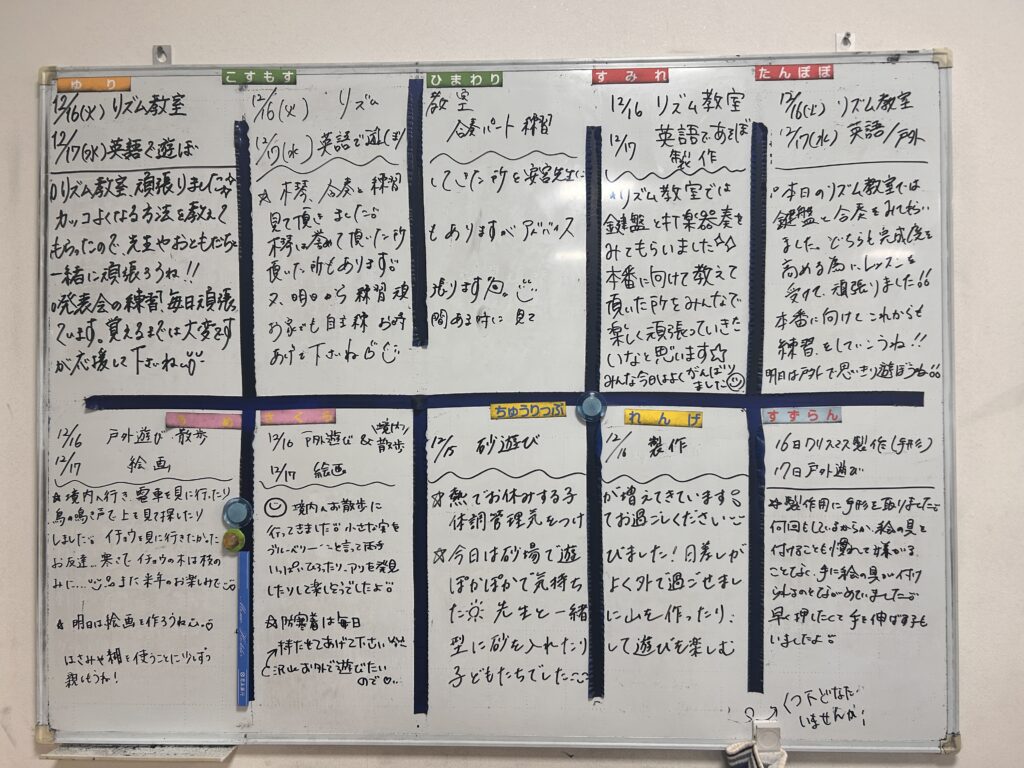 ゆり
12/16(火) リズム教室
12/17(水)英語で遊ぼ
○リズム教室、頑張りました☆☆
カッコよくなる方法を教えて
もらったので、先生やおともだちと
一緒に頑張ろうね!!
○発表会の練習、毎日頑張
ています。覚えるまでは大変です
が応援して下さいね
こすもす
12/16(火) リズム
12/17(水) 英語で遊ぼ
☆木琴、合奏と練習
見て頂きました。
木琴は誉めて頂いた所
頂いた所もあります。
又、明日から練習頑
お家でも自主練 お時
あげて下さいね
ひまわり
教室
合奏パート練習
してきた所を安宮先生に
もありますがアドバイス
張ります
間ある時に見て
すみれ
12/16 リズム教室
12/17 英語であそぼ
製作
○リズム教室では
鍵盤と打楽器奏を
みてもらいました☆☆
本番に向けて教えて
頂いた所をみんなで
楽しく頑張っていきた
いなと思います☆
みんな今日はよくがんばり
ました
たんぽぽ
12/16(火) リズム教室
12/17(水) 英語/戸外
○本日のリズム教室では
鍵盤と合奏をみてもらい
ました。どちらも完成度を
高める為にレッスンを
受けて、頑張りました!!
本番に向けてこれからも
練習をしていこうね!!
明日は戸外で思いきり遊ぼうね
うめ
12/16 戸外遊び 散歩
12/17 絵画
☆境内へ行き、電車を見に行ったり
鳥の鳴き声で上を見て探したり
しました。イチョウを見に行きたかった
お友達…寒さで、イチョウの木は枝の
みに…また来年のお楽しみで
☆明日は絵画を作ろうね
はさみや糊を使うことに少しずつ
親しもうね!
さくら
12/16 戸外遊び & 境内へ散歩
12/17 絵画
境内へお散歩に
行ってきました。小さな実を
ブルーベリー…と言って両手
いっぱいひろったり、アリを発見
したりして楽しそうでしたよ
☆防寒着は毎日
持たせてあげて下さい
沢山お外で遊びたい
ので
ちゅうりっぷ
12/15 砂遊び
☆熱でお休みする子
体調管理気をつけ
☆今日は砂場で遊
ぽかぽかで気持ち
た 先生と一緒
型に砂を入れたり
子どもたちでした
れんげ
12/16 製作
が増えてきています。
てお過ごしください
びました!日差しが
よく外で過ごせまし
に山を作ったり、
して遊びを楽しむ
すずらん
16日クリスマス製作(手形)
17日戸外遊び
☆製作用に手形を取りました
何回もしているからか絵の具を
付けることも慣れて嫌がる
ことなく、手に絵の具が付け
られるのをながめていました
早く押したくて手を伸ばす子も
いましたよ
くつ下どなた
いませんか!